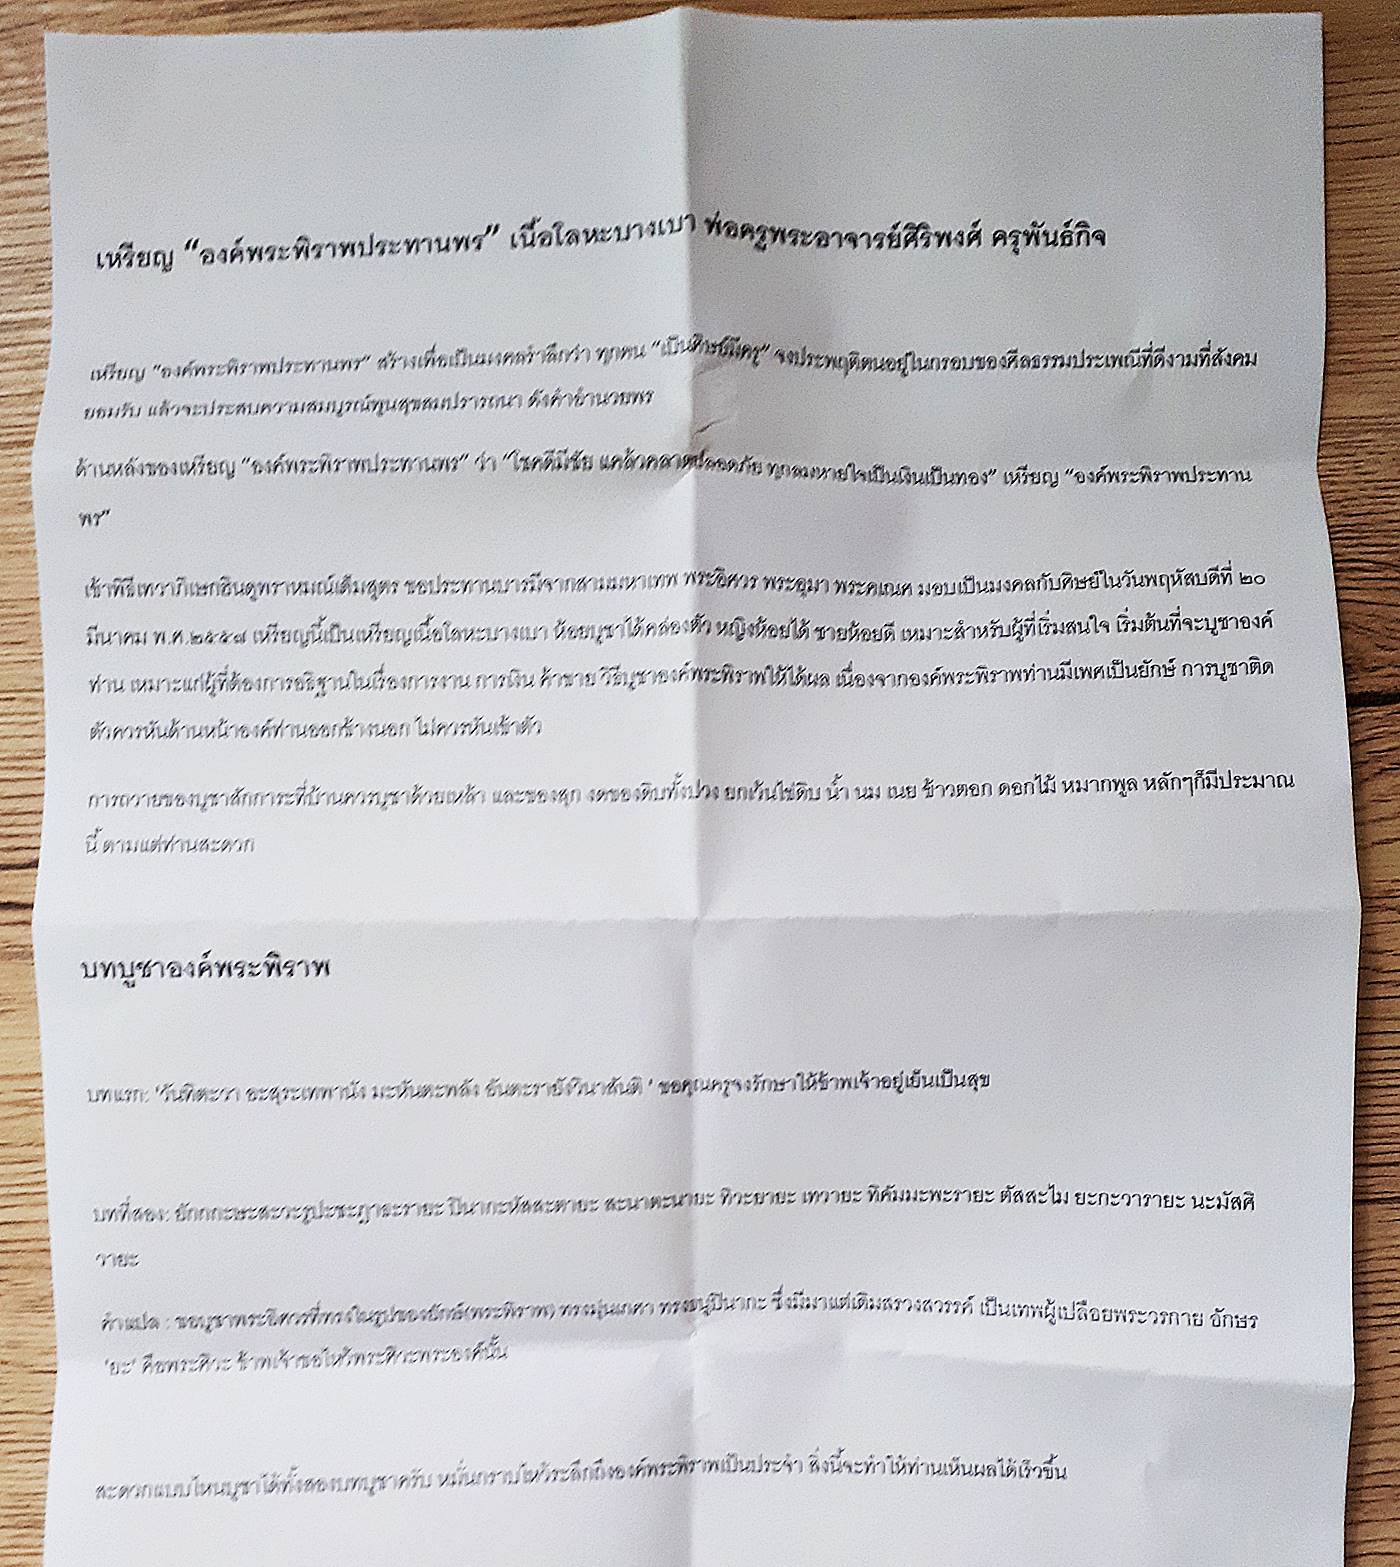 เหรียญ “องค์พระพิราพประทานพร” เนื้อโลหะบางเบา พ่อครูพระอาจารย์ศิริพงศ์ ครุพันธ์กิจ
เหรียญ “องค์พระพิราพประทานพร” สร้างเพื่อเป็นมงคลรำลึกว่า ทุกคน “เป็นศิษย์มีครู” จงประพฤติตนอยู่ในกรอบของศีลธรรมประเพณีที่ดีงามที่สังคม
ยอมรับ แล้วจะประสบความสมบูรณ์พูนสุขสมปรารถนา ดังคำอำนวยพร
ด้านหลังของเหรียญ “องค์พระพิราพประทานพร” ว่า “โชคดีมีชัย แคล้วคลาดปลอดภัย ทุกลมหายใจเป็นเงินเป็นทอง” เหรียญ “องค์พระพิราพประทาน
พร”
เข้าพิธีเทวาภิเษกฮินดูพราหมณ์เต็มสูตร ขอประทานบารมีจากสามมหาเทพ พระอิศวร พระอุมา พระคเณศ มอบเป็นมงคลกับศิษย์ในวันพฤหัสบดีที่ ๒๐
มีนาคม พ.ศ.๒๕๕๗ เหรียญนี้เป็นเหรียญเนื้อโลหะบางเบา ห้อยบูชาได้คล่องตัว หญิงห้อยได้ ชายห้อยดี เหมาะสำหรับผู้ที่เริ่มสนใจ เริ่มต้นที่จะบูชาองค์
ท่าน เหมาะแก่ผู้ที่ต้องการอธิฐานในเรื่องการงาน การเงิน ค้าขาย วิธีบูชาองค์พระพิราพให้ได้ผล เนื่องจากองค์พระพิราพท่านมีเพศเป็นยักษ์ การบูชาติด
ตัวควรหันด้านหน้าองค์ท่านออกข้างนอก ไม่ควรหันเข้าตัว
การถวายของบูชาสักการะที่บ้านควรบูชาด้วยเหล้า และของสุก งดของดิบทั้งปวง ยกเว้นไข่ดิบ น้ำ นม เนย ข้าวตอก ดอกไม้ หมากพูล หลักๆก็มีประมาณ
นี้ ตามแต่ท่านสะดวก
บทบูชาองค์พระพิราพ
บทแรก: 'วันทิตะวา อะสุระเทพานัง มะหันตะพลัง อันตะรายังวินาสันติ ' ขอคุณครูจงรักษาให้ข้าพเจ้าอยู่เย็นเป็นสุข
บทที่สอง: ยักกกะษะสะวะรูปะชะฎาธะรายะ ปินากะหัสสะตายะ สะนาตะนายะ ทิวะยายะ เทวายะ ทิคัมมะพะรายะ ตัสสะไม ยะกะวารายะ นะมัสศิ
วายะ
คำแปล : ขอบูชาพระอิศวรที่ทรงในรูปของยักษ์(พระพิราพ) ทรงมุ่นเกศา ทรงธนูปินากะ ซึ่งมีมาแต่เดิมสรวงสวรรค์ เป็นเทพผู้เปลือยพระวรกาย อักษร
'ยะ' คือพระศิวะ ข้าพเจ้าขอไหว้พระศิวะพระองค์นั้น
สะดวกแบบไหนบูชาได้ทั้งสองบทบูชาครับ หมั่นกราบไหว้ระลึกถึงองค์พระพิราพเป็นประจำ สิ่งนี้จะทำให้ท่านเห็นผลได้เร็วขึ้น